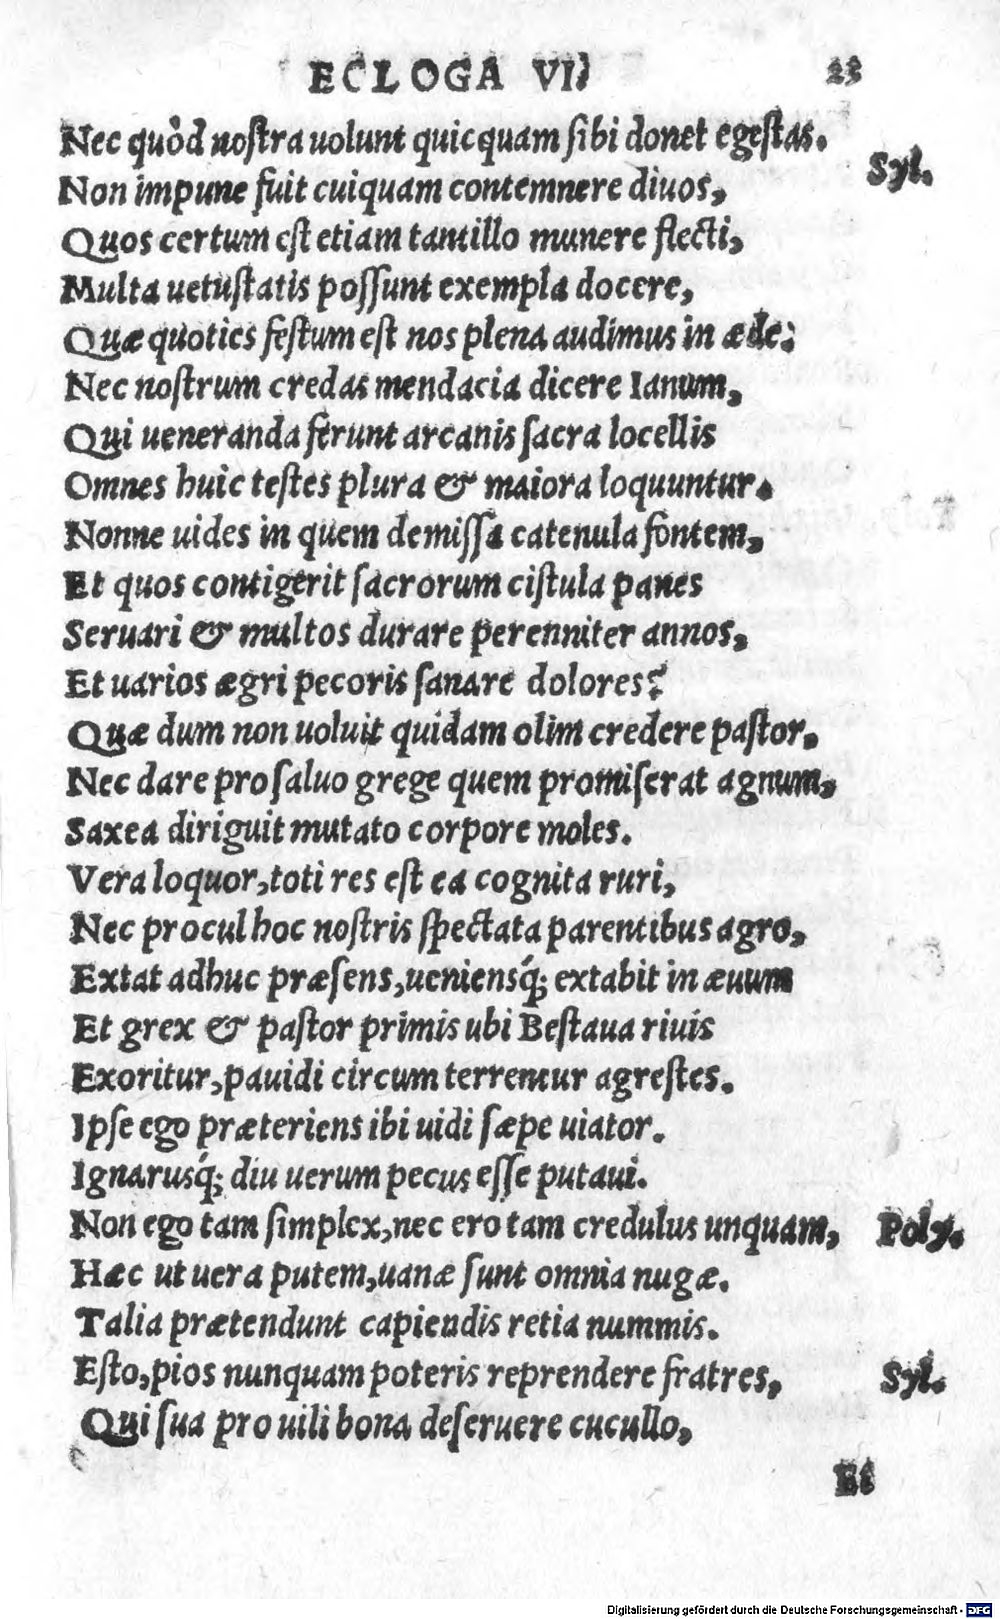 ECLOGA VII 23
Nec quòd nostra uolunt quicquam sibi donet egestas.
Non impune fuit cuiquam contemnere diuos, Syl.
Quos certum est etiam tantillo munere flecti,
Multa uetustatis possunt exempla docere,
Quæ quoties festum est nos plena audimus in æde:
Nec nostrum credas mendacia dicere Ianum,
Qui ueneranda ferunt arcanis sacra locellis
Omnes huic testes plura & maiora loquuntur.
Nonne uides in quem demissa catenula fontem,
Et quos contigerit sacrorum cistula panes
Seruari & multos durare perenniter annos,
Et uarios ægri pecoris sanare dolores?
Quæ dum non uoluit quidam olim credere pastor,
Nec dare pro saluo grege quem promiserat agnum,
Saxea diriguit mutato corpore moles.
Vera loquor, toti res est ea cognita ruri,
Nec procul hoc nostris spectata parentibus agro,
Extat adhuc præsens, ueniensq́; extabit in æuum
Et grex & pastor primis ubi Bestaua riuis
Exoritur, pauidi circum terrentur agrestes.
Ipse ego præteriens ibi uidi sæpe uiator.
Ignarusq́; diu uerum pecus esse putaui.
Non ego tam simplex, nec ero tam credulus unquam, Poly.
Hæc ut uera putem, uanæ sunt omnia nugæ.
Talia prætendunt capiendis retia nummis.
Esto, pios nunquam poteris reprendere fratres, Syl.
Qui sua pro uili bona deseruere cucullo,
Et
Digitalisierung gefördert durch die Deutsche Forschungsgemeinschaft - DFG